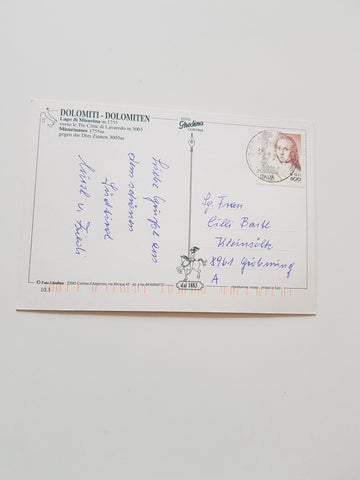 DOLOMITI - DOLOMITEN
Lago di Misurina m.1755
verso le Tre Cime di Lavaredo m.3003
Misurinasee 1755m
gegen die Drei Zinnen 3003m
FOTO
Ghedina
CORTINA
Liebe Grüße aus
dem schönen
Südtirol
ITALIA
800
Sg. Frau
Cilli Bartl
Kleinsölk
8961 Gröbming
A
dal 1883
© Foto Ghedina - 32043 Cortina d'Ampezzo
103